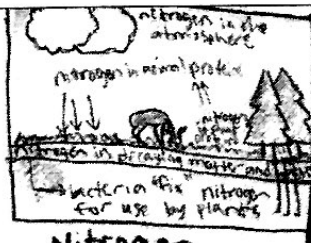 nitrogen in the
atmosphere
nitrogen in animal protein
nitrogen
in
plant
Nitrogen in decaying matter and
bacteria "fix" nitrogen
for use by plants
Nitrogen